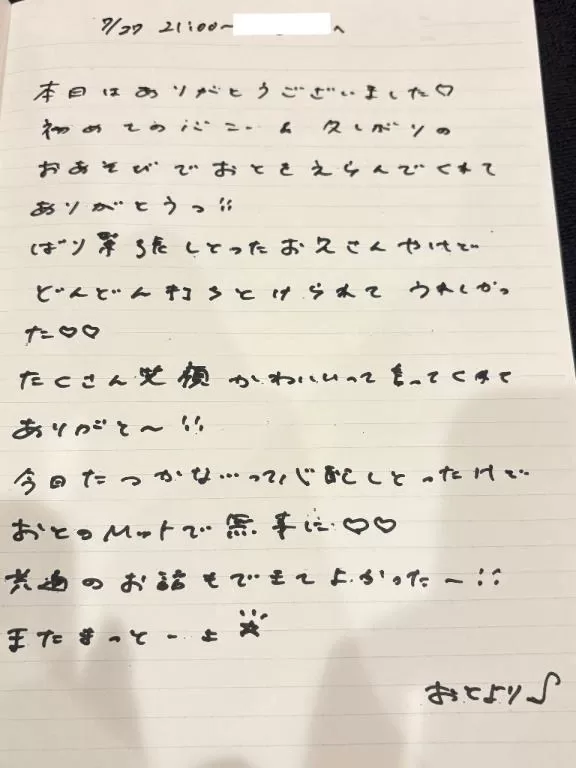 7/27 21:00〜 へ
本日はありがとうございました♡
初めてのバニーん 久しがりの
おあそびでおとをえらんでくれて
ありがとうっ!!
ばり緊張しとったお兄さんやけど
どんどん打ちとけられて うれしかっ
た♡♡
たくさん笑顔かわいいって言ってくれて
ありがと〜!!
今日たつかな…って心配しとったけど
おとのMットで無事に♡♡
共通のお話もできてよかった〜!!
またまっとーよ☆
おとより♪